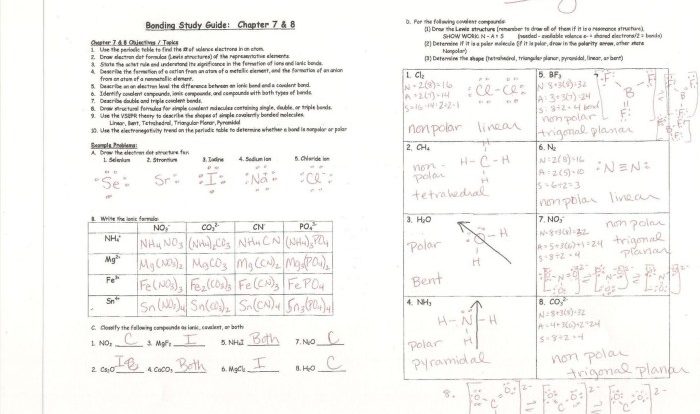 Bonding Study Guide: Chapter 7 & 8
Chapter 7 & 8 Objectives / Topics
1. Use the periodic table to find the # of valence electrons in an atom.
2. Draw electron dot formulas (Lewis structures) of the representative elements.
3. State the octet rule and understand its significance in the formation of ions and ionic bonds.
4. Describe the formation of a cation from an atom of a metallic element, and the formation of an anion
from an atom of a nonmetallic element.
5. Describe on an electron level the difference between an ionic bond and a covalent bond.
6. Identify covalent compounds, ionic compounds, and compounds with both types of bonds.
7. Describe double and triple covalent bonds.
8. Draw structural formulas for simple covalent molecules containing single, double, or triple bonds.
9. Use the VSEPR theory to describe the shapes of simple covalently bonded molecules.
Linear, Bent, Tetrahedral, Triangular Planar, Pyramidal
10. Use the electronegativity trend on the periodic table to determine whether a bond is nonpolar or polar
Example Problems:
A. Draw the electron dot structure for:
1. Selenium 2. Strontium 3. Iodine 4. Sodium ion 5. Chloride ion
Se Sr: I Na Cl
B. Write the ionic formula:
NO₃⁻ CO₃²⁻ CN⁻ PO₄³⁻
NH₄⁺ NH₄NO₃ (NH₄)₂CO₃ NH₄CN (NH₄)₃PO₄
Mg²⁺ Mg(NO₃)₂ MgCO₃ Mg(CN)₂ Mg₃(PO₄)₂
Fe³⁺ Fe(NO₃)₃ Fe₂(CO₃)₃ Fe(CN)₃ FePO₄
Sn⁴⁺ Sn(NO₃)₄ Sn(CO₃)₂ Sn(CN)₄ Sn₃(PO₄)₄
C. Classify the following compounds as ionic, covalent, or both
1. NO₂ C 3. MgF₂ I 5. NH₄I Both 7. N₂O C
2. Cs₂O I 4. CaCO₃ Both 6. MgCl₂ I 8. H₂O C
D. For the following covalent compounds:
(1) Draw the Lewis structure (remember to draw all of them if it is a resonance structure).
SHOW WORK: N - A = S (needed - available valence e- = shared electrons/2 = bonds)
(2) Determine if it is a polar molecule (if it is polar, draw in the polarity arrow, other state
Nonpolar)
(3) Determine the shape (tetrahedral, triangular planar, pyramidal, linear, or bent)
1. Cl₂
N = 2(8)=16
A = 2(7)=14
S=16-14=2÷2=1
:Cl-Cl:
nonpolar linear
5. BF₃
F B F
F
nonpolar
trigonal planar
2. CH₄
H-C-H
H
non-
polar
tetrahedral
6. N₂
N=2(8)=16
A=2(5)=10
S=6÷2=3
:N≡N:
nonpolar linear
3. H₂O
O - H
H
Polar
Bent
7. NO₃⁻
N=8+3(8)=32
A=5+3(6)+1=24
S=8÷2=4
non polar
trigonal
planar
4. NH₃
H-N-H
H
Polar
pyramidal
8. CO₃²⁻
N=8+3(8)=32
A=4+3(6)+2=24
S=8÷2=4
non polar
trigonal planar
8.